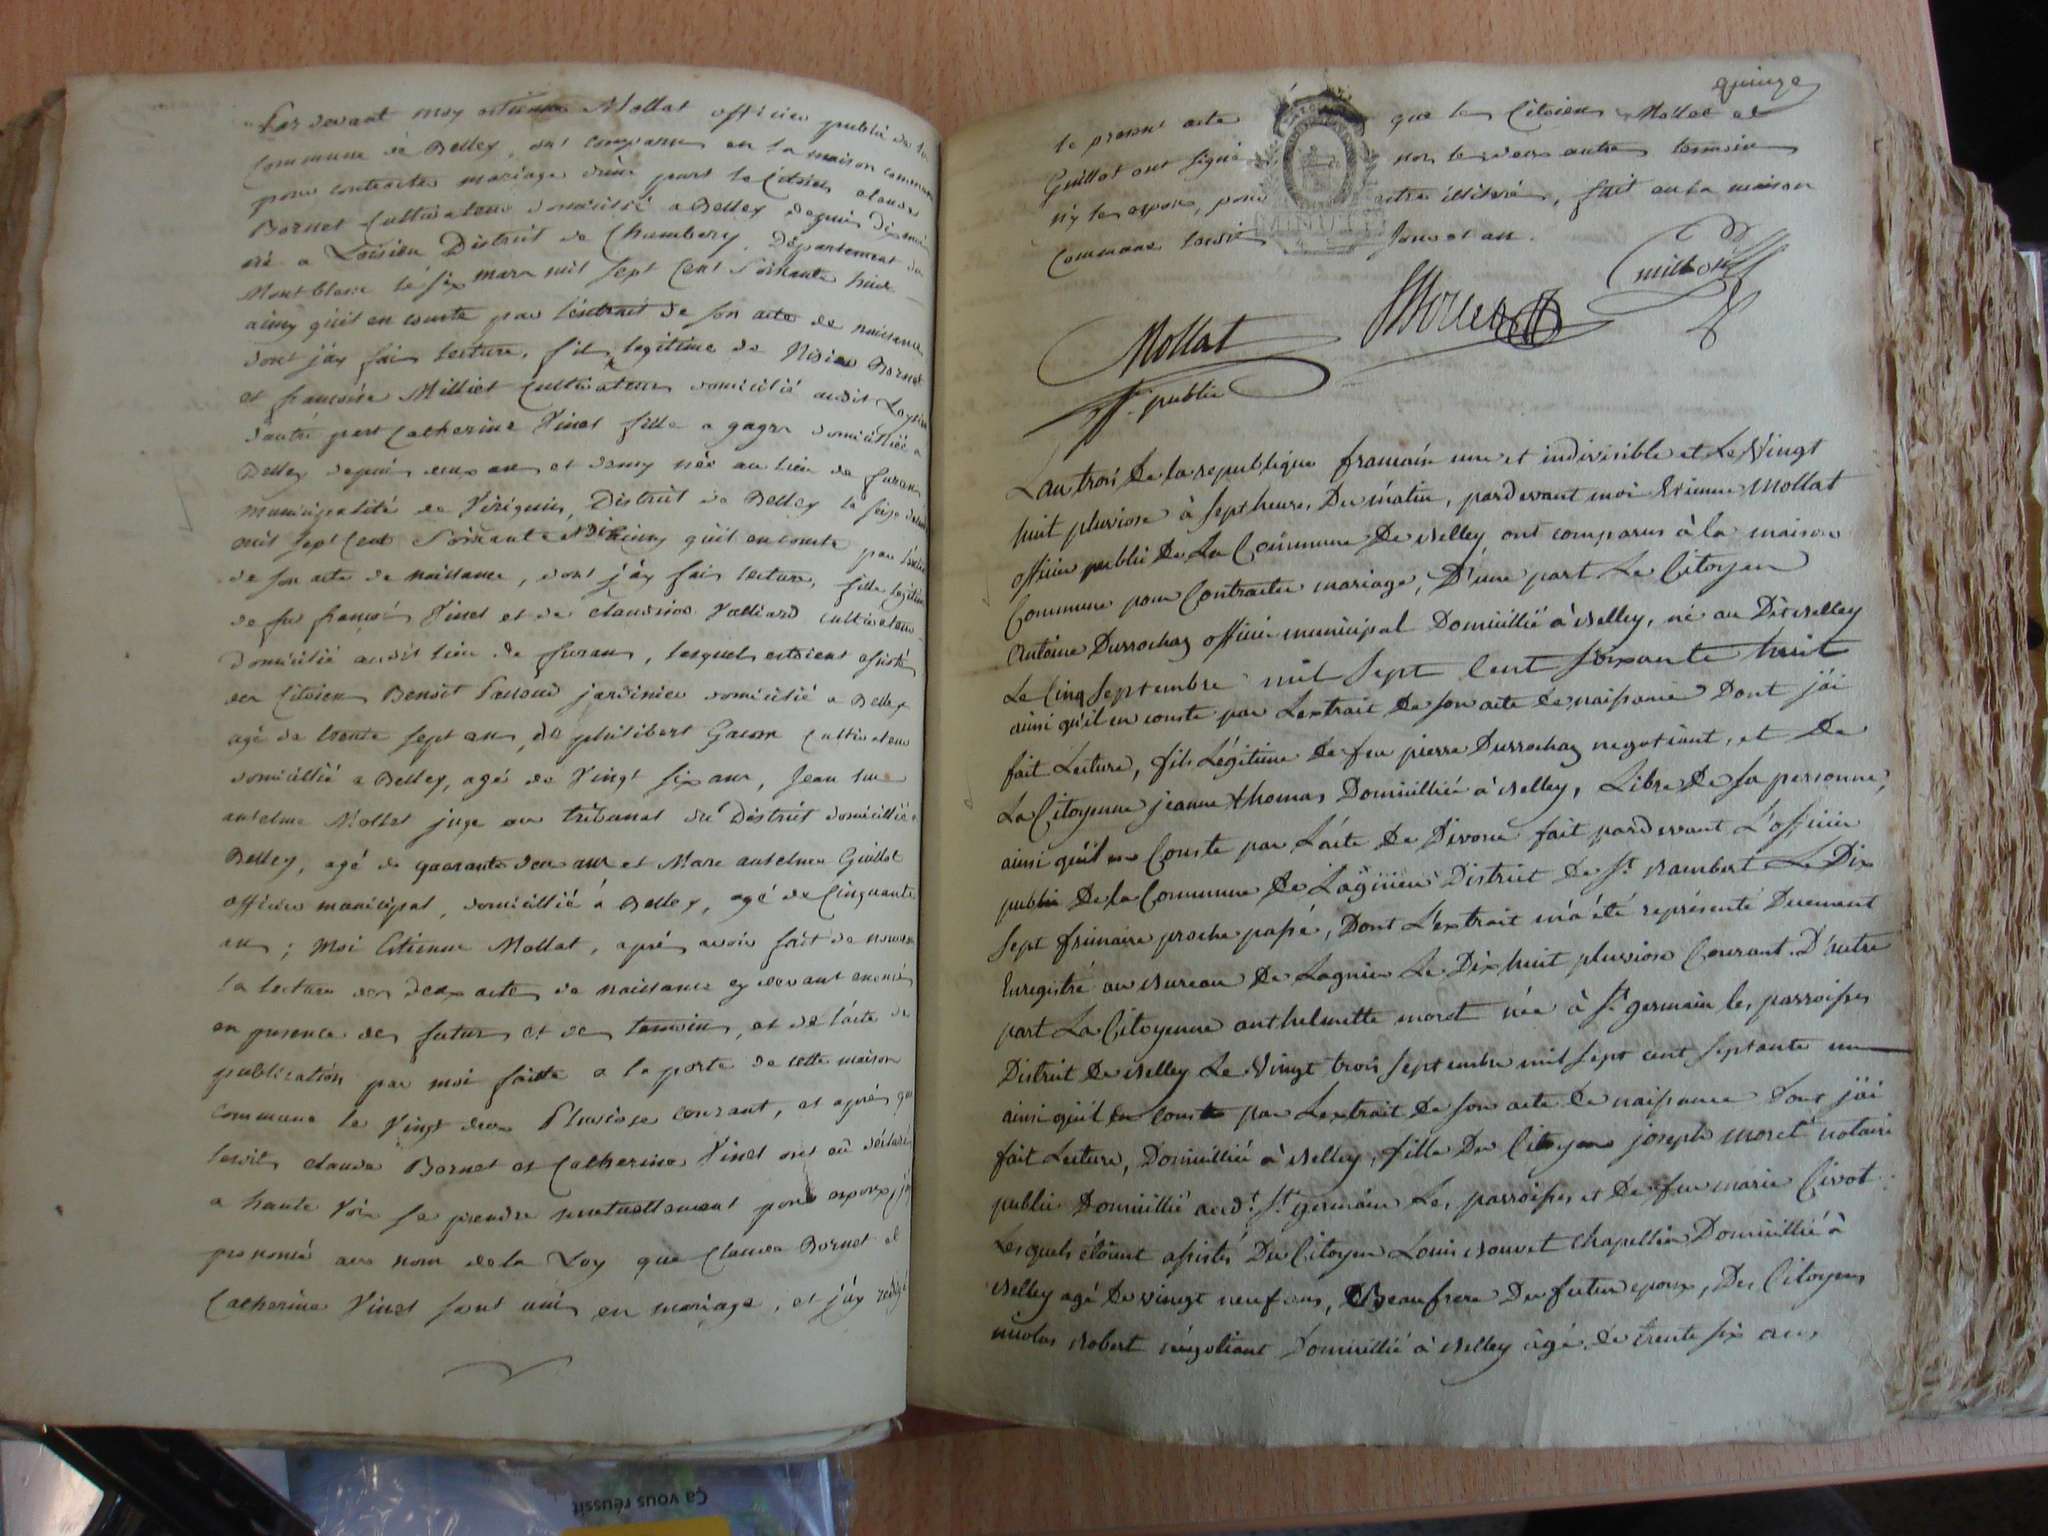 Par devant moy etienne Mollat officier public de la
Commune de Belley, ont comparus en la maison commune
pour contracter mariage d'une part le Citoien claude
Bornet Cultivateur domicilié a Belley depuis dix mois
né a Loisieu District de Chambery, Département du
Montblanc le six mars mil sept Cent Soixante huit
ainsy qu'il en conste par l'extrait de son acte de naissance
dont j'ay fais lecture, fils legitime de Bornet
et francoise Milliet Cultivateurs domicilié audit Loysieu
d'autre part Catherine Vinet fille a gages domiciliée a
Belley depuis deux ans et demy née au lieu de furans
municipalité de Virignin, District de Belley le seize
mil sept Cent Soixante dix ainsy qu'il en conste par l'extrait
de son acte de naissance, dont j'ay fais lecture, fille legitime
de feu françois Vinet et de claudine Valliard cultivateur
domicilié audit lieu de furans, lesquels etoient assistés
des Citoien Benoît jardinier domicilié a Belley
agé de trente sept ans, de philibert Gacon Cultivateur
domicilié a Belley, agé de Vingt six ans, Jean
antelme Mollet juge au tribunal du District domicilié a
Belley, agé de quarante deux ans et Marc antelme Guillot
officier municipal, domicilié á Belley, agé de Cinquante
ans; Moi Etienne Mollat, aprés avoir fait de nouveau
la lecture des deux actes de naissance cy devant enoncés
en presence des futurs et des temoins, et de l'acte de
publication par moi faitte a la porte de cette maison
commune le Vingt deux Pluviose courant, et aprés que
lesdits claude Bornet et Catherine Vinet ont eu déclaré
a haute Voix se prendre mutuellement pour epoux, j'ai
prononcé au nom de la Loy que Claude Bornet et
Catherine Vinet sont unis en mariage, et j'ay redigé
quinze
le present acte que les Citoiens Mollet et
Guillot ont signé non les deux autres temoins
n'y les epoux, pour etre illiteré, fait en la maison
Commune lesdits Jour et an.
MINUTE
Guillot
Mollet
Mollat
off. public
L'an trois De la republique francaise une et indivisible et Le Vingt
huit pluviose à Sept heures Du matin, pardevant moi Etienne Mollat
officier public De La Commune De Belley ont comparus à la maison
Commune pour Contracter mariage, D'une part Le Citoyen
Antoine Durrochaz officier municipal Domicillié à Belley, né au Dit Belley
Le Cinq Septembre mil Sept Cent Soixante huit
ainsi qu'il en conste par Lextrait De son acte De naissance Dont j'ai
fait Lecture, fils Légitime De feu pierre Durrochaz negotiant, et De
La Citoyenne jeanne thomas Domicilliée à Belley, Libre De sa personne,
ainsi qu'il en Conste par L'acte De Divorce fait pardevant L'officier
public De la Commune De Lagnieu District De St. Rambert Le Dix
Sept frimaire proche passé, Dont L'extrait m'a été représenté Duement
Enregistré au Bureau De Lagnieu Le Dix huit pluviose Courant. D'autre
part La Citoyenne anthelmette moret née à St. germain les parroisses
District De Belley Le Vingt trois Septembre mil sept cent septante un
ainsi qu'il en conste par Lextrait De son acte De naissance Dont j'ai
fait Lecture, Domicilliée à Belley, fille Du Citoyen joseph moret notaire
public Domicillié aud. St. germain Les parroisses et De feu marie Civot
Lesquels étoient assistés Du Citoyen Louis Bouvet Chapellier Domicillié à
Belley agé De vingt neuf ans, Beaufrere Du futur epoux, Des Citoyens
nicolas Robert négotiant Domicillié à Belley âgé De trente six ans,
Ça vous réussit